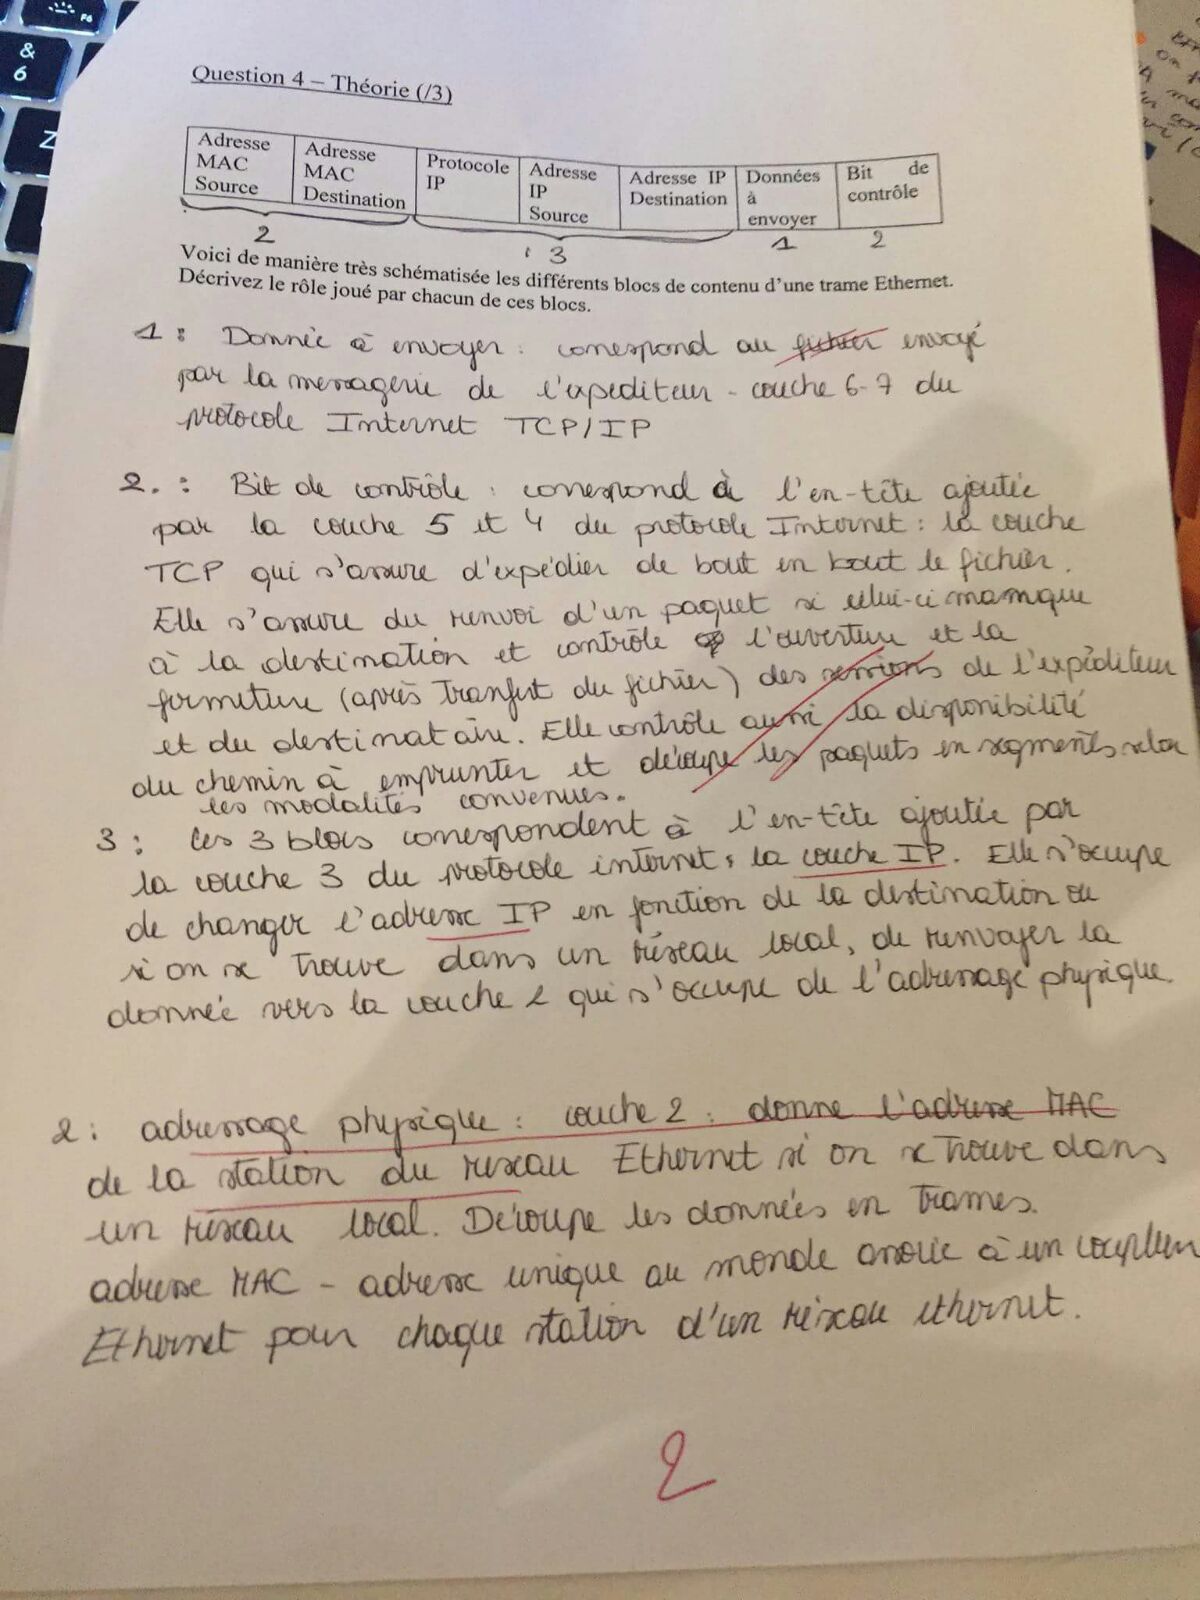 F6
&
6
Z
Question 4 – Théorie (/3)
Adresse MAC Source
Adresse MAC Destination
Protocole IP
Adresse IP Source
Adresse IP Destination
Données à envoyer
Bit de contrôle
2
3
1
2
Voici de manière très schématisée les différents blocs de contenu d'une trame Ethernet.
Décrivez le rôle joué par chacun de ces blocs.
1 : Donnée à envoyer : correspond au fichier envoyé
par la messagerie de l'expediteur - couche 6-7 du
protocole Internet TCP/IP
2. : Bit de contrôle : correspond à l'en-tête ajoutée
par la couche 5 et 4 du protocole Internet : la couche
TCP qui s'assure d'expédier de bout en bout le fichier.
Elle s'assure du renvoi d'un paquet si celui-ci manque
à la destination et contrôle l'ouverture et la
fermeture (après tranfert du fichier) des sessions de l'expéditeur
et du destinataire. Elle contrôle aussi la disponibilité
du chemin à emprunter et découpe les paquets en segments selon
les modalités convenues.
3 : Ces 3 blocs correspondent à l'en-tête ajoutée par
la couche 3 du protocole internet : la couche IP. Elle s'occupe
de changer l'adresse IP en fonction de la destination ou
si on se trouve dans un réseau local, de renvoyer la
donnée vers la couche 2 qui s'occupe de l'adressage physique.
2 : adressage physique : couche 2 : donne l'adresse MAC
de la station du reseau Ethernet si on se trouve dans
un réseau local. Découpe les données en trames.
adresse MAC - adresse unique au monde associé à un coupleur
Ethernet pour chaque station d'un réseau ethernet.
2